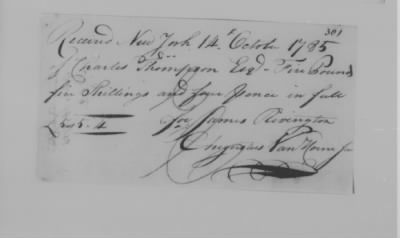 301
Received New York 14th October 1785
of Charles Thompson Esqr. Five Pounds
five Shillings and four pence in full
£5..5..4 for James Rivington
Van Horne Jun